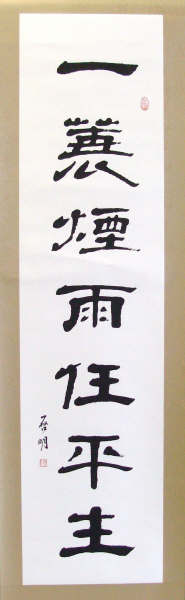 一蓑煙雨任平生
启明